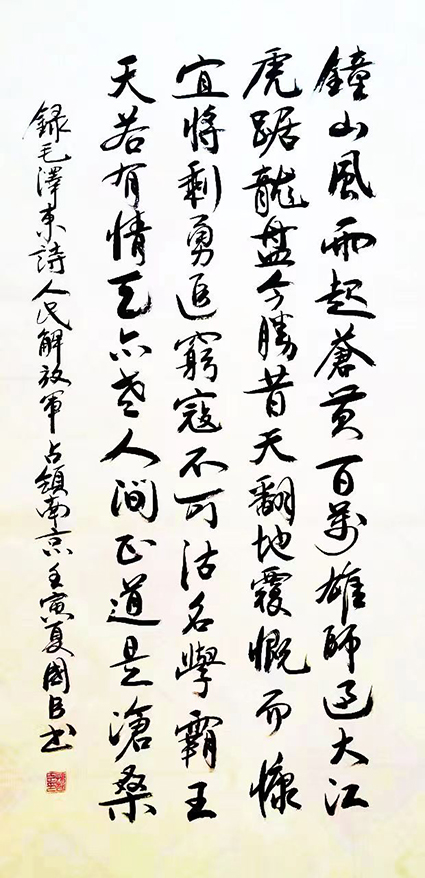 鐘山風雨起蒼黄百萬雄師過大江
虎踞龍盤今勝昔天翻地覆慨而慷
宜將剩勇追窮寇不可沽名學霸王
天若有情天亦老人間正道是滄桑
録毛澤東詩人民解放軍占領南京壬寅夏國书